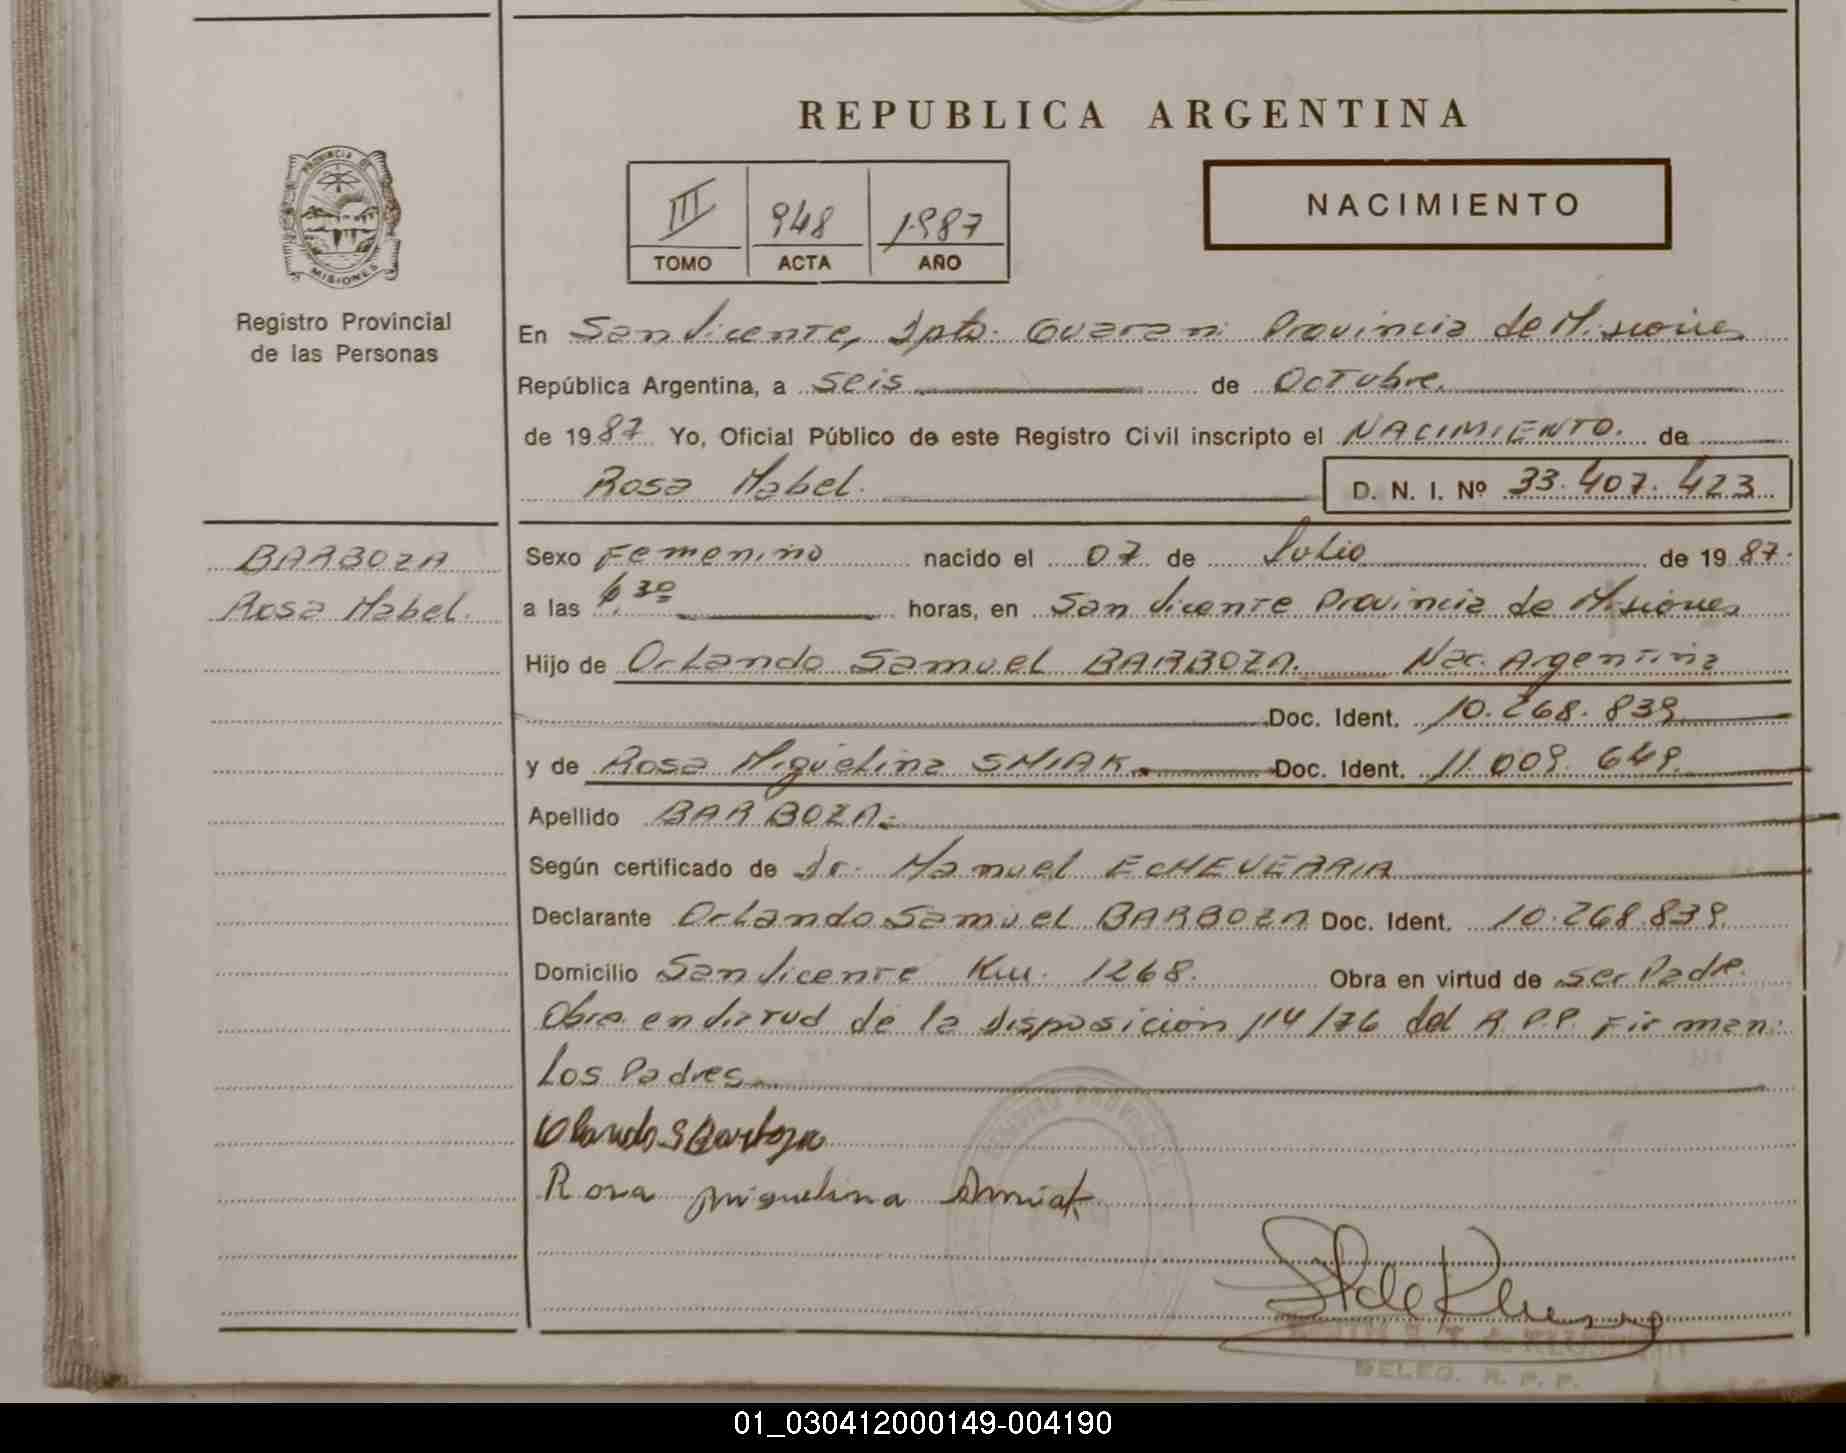 REPUBLICA ARGENTINA
PROVINCIA DE
MISIONES
Registro Provincial
de las Personas
III 948 1987
TOMO ACTA AÑO
NACIMIENTO
En San Vicente, Dpto. Guarani Provincia de Misiones
República Argentina, a seis de Octubre.
de 1987 Yo, Oficial Público de este Registro Civil inscripto el NACIMIENTO. de
Rosa Mabel. D. N. I. Nº 33.407.423
BARBOZA
Rosa Mabel.
Sexo Femenino nacido el 07 de Julio de 1987.
a las 6,30 horas, en San Vicente Provincia de Misiones
Hijo de Orlando Samuel BARBOZA. Nac. Argentina
Doc. Ident. 10.268.839
y de Rosa Miguelina SMIAK. Doc. Ident. 11.009.649.
Apellido BARBOZA.
Según certificado de Dr. Manuel ECHEVERRIA
Declarante Orlando Samuel BARBOZA Doc. Ident. 10.268.839.
Domicilio San Vicente Km. 1268. Obra en virtud de ser Padre.
Obra en virtud de la disposición 114/76 del R.P.P. Firman:
Los Padres
Orlando S Barboza
Rosa Miguelina Smiak
DELEG. R. P. P.
01_030412000149-004190